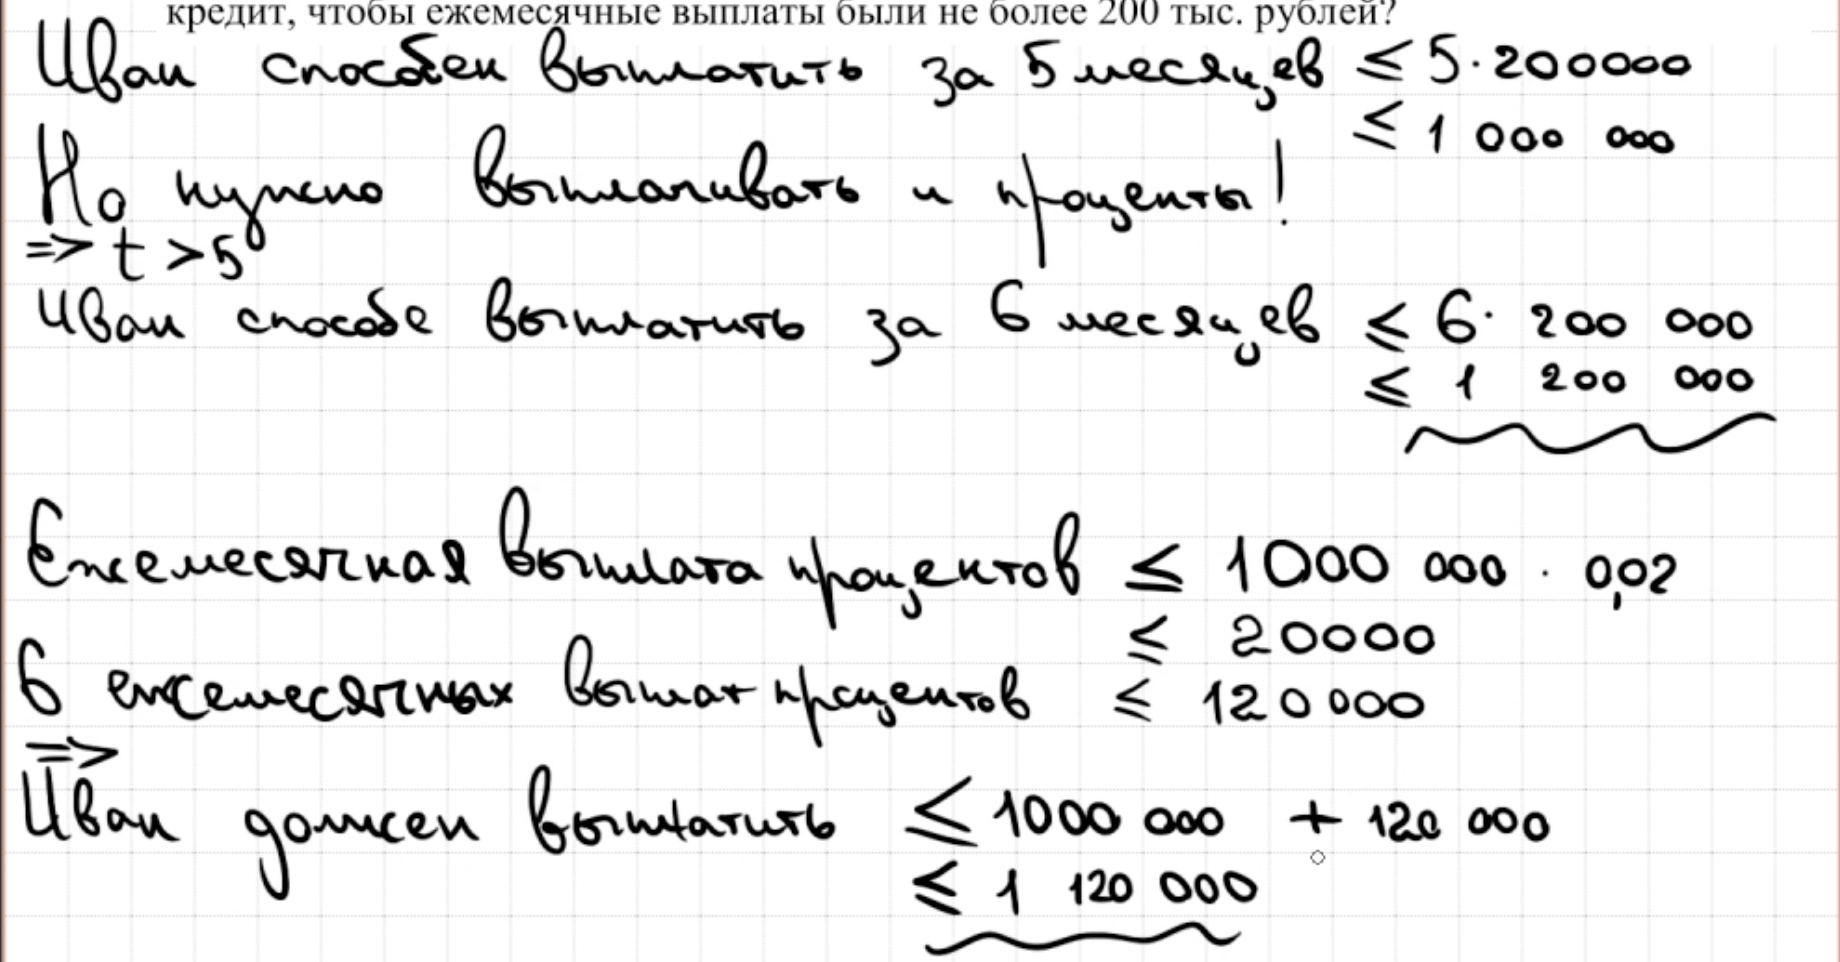 кредит, чтобы ежемесячные выплаты были не более 200 тыс. рублей?
Иван способен выплатить за 5 месяцев ≤ 5·200000
≤ 1 000 000
Но нужно выплачивать и проценты!
=> t > 5
Иван способе выплатить за 6 месяцев ≤ 6· 200 000
≤ 1 200 000
Ежемесячная выплата процентов ≤ 1000 000 · 0,02
≤ 20000
6 ежемесячных выплат процентов ≤ 120 000
=>
Иван должен выплатить ≤ 1000 000 + 120 000
≤ 1 120 000